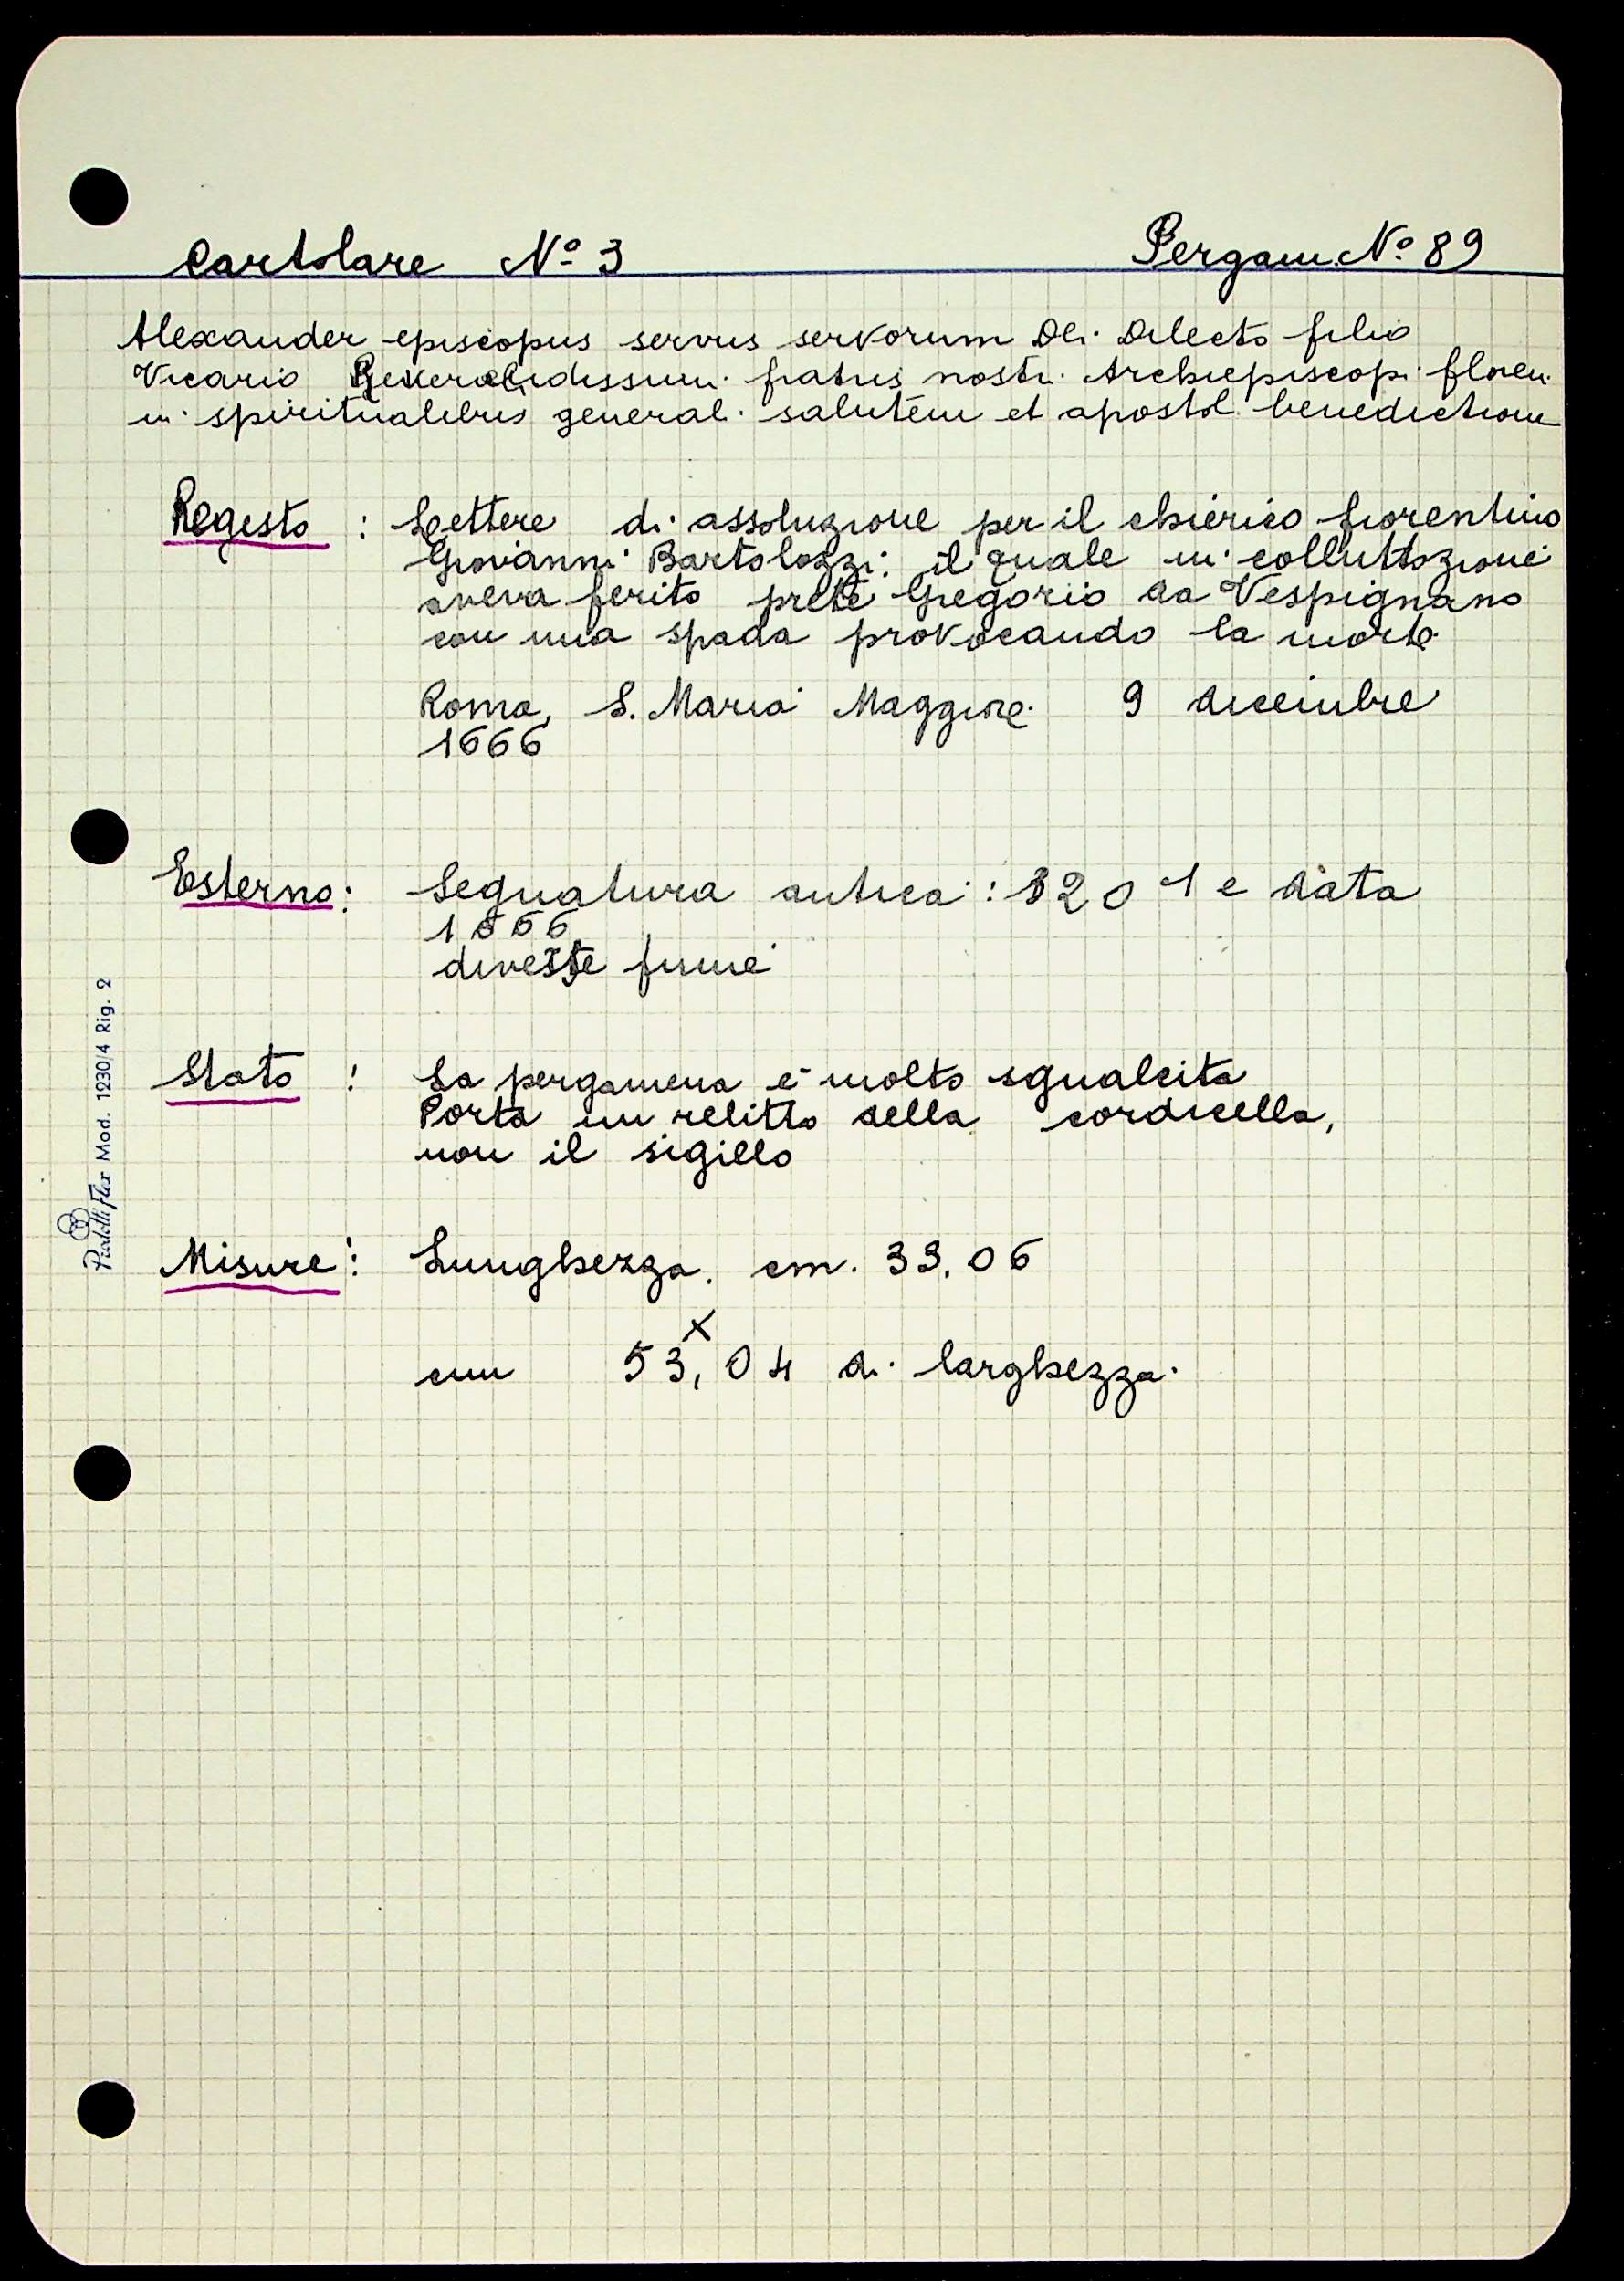 Cartolare Nº 3 Pergam. Nº 89
Alexander episcopus servus servorum Dei. Dilecto filio
Vicario fratris nostri Archiepiscopi floren.
in spiritualibus general. salutem et apostol. benediction
Regesto : Lettere di assoluzione per il chierico fiorentino
Giovanni Bartolozzi. il quale in colluttazione
aveva ferito prete Gregorio da Vespignano
con una spada provocando la morte.
Roma, S. Maria Maggiore 9 dicembre
1666
Esterno: Segnatura antica : e data
1666
diverse firme
Stato : La pergamena è molto sgualcita
Porta un relitto della cordicella,
non il sigillo
Misure: Lunghezza. cm. 33,06
X
cm 53,04 di larghezza.
Mod. 1230/4 Rig. 2